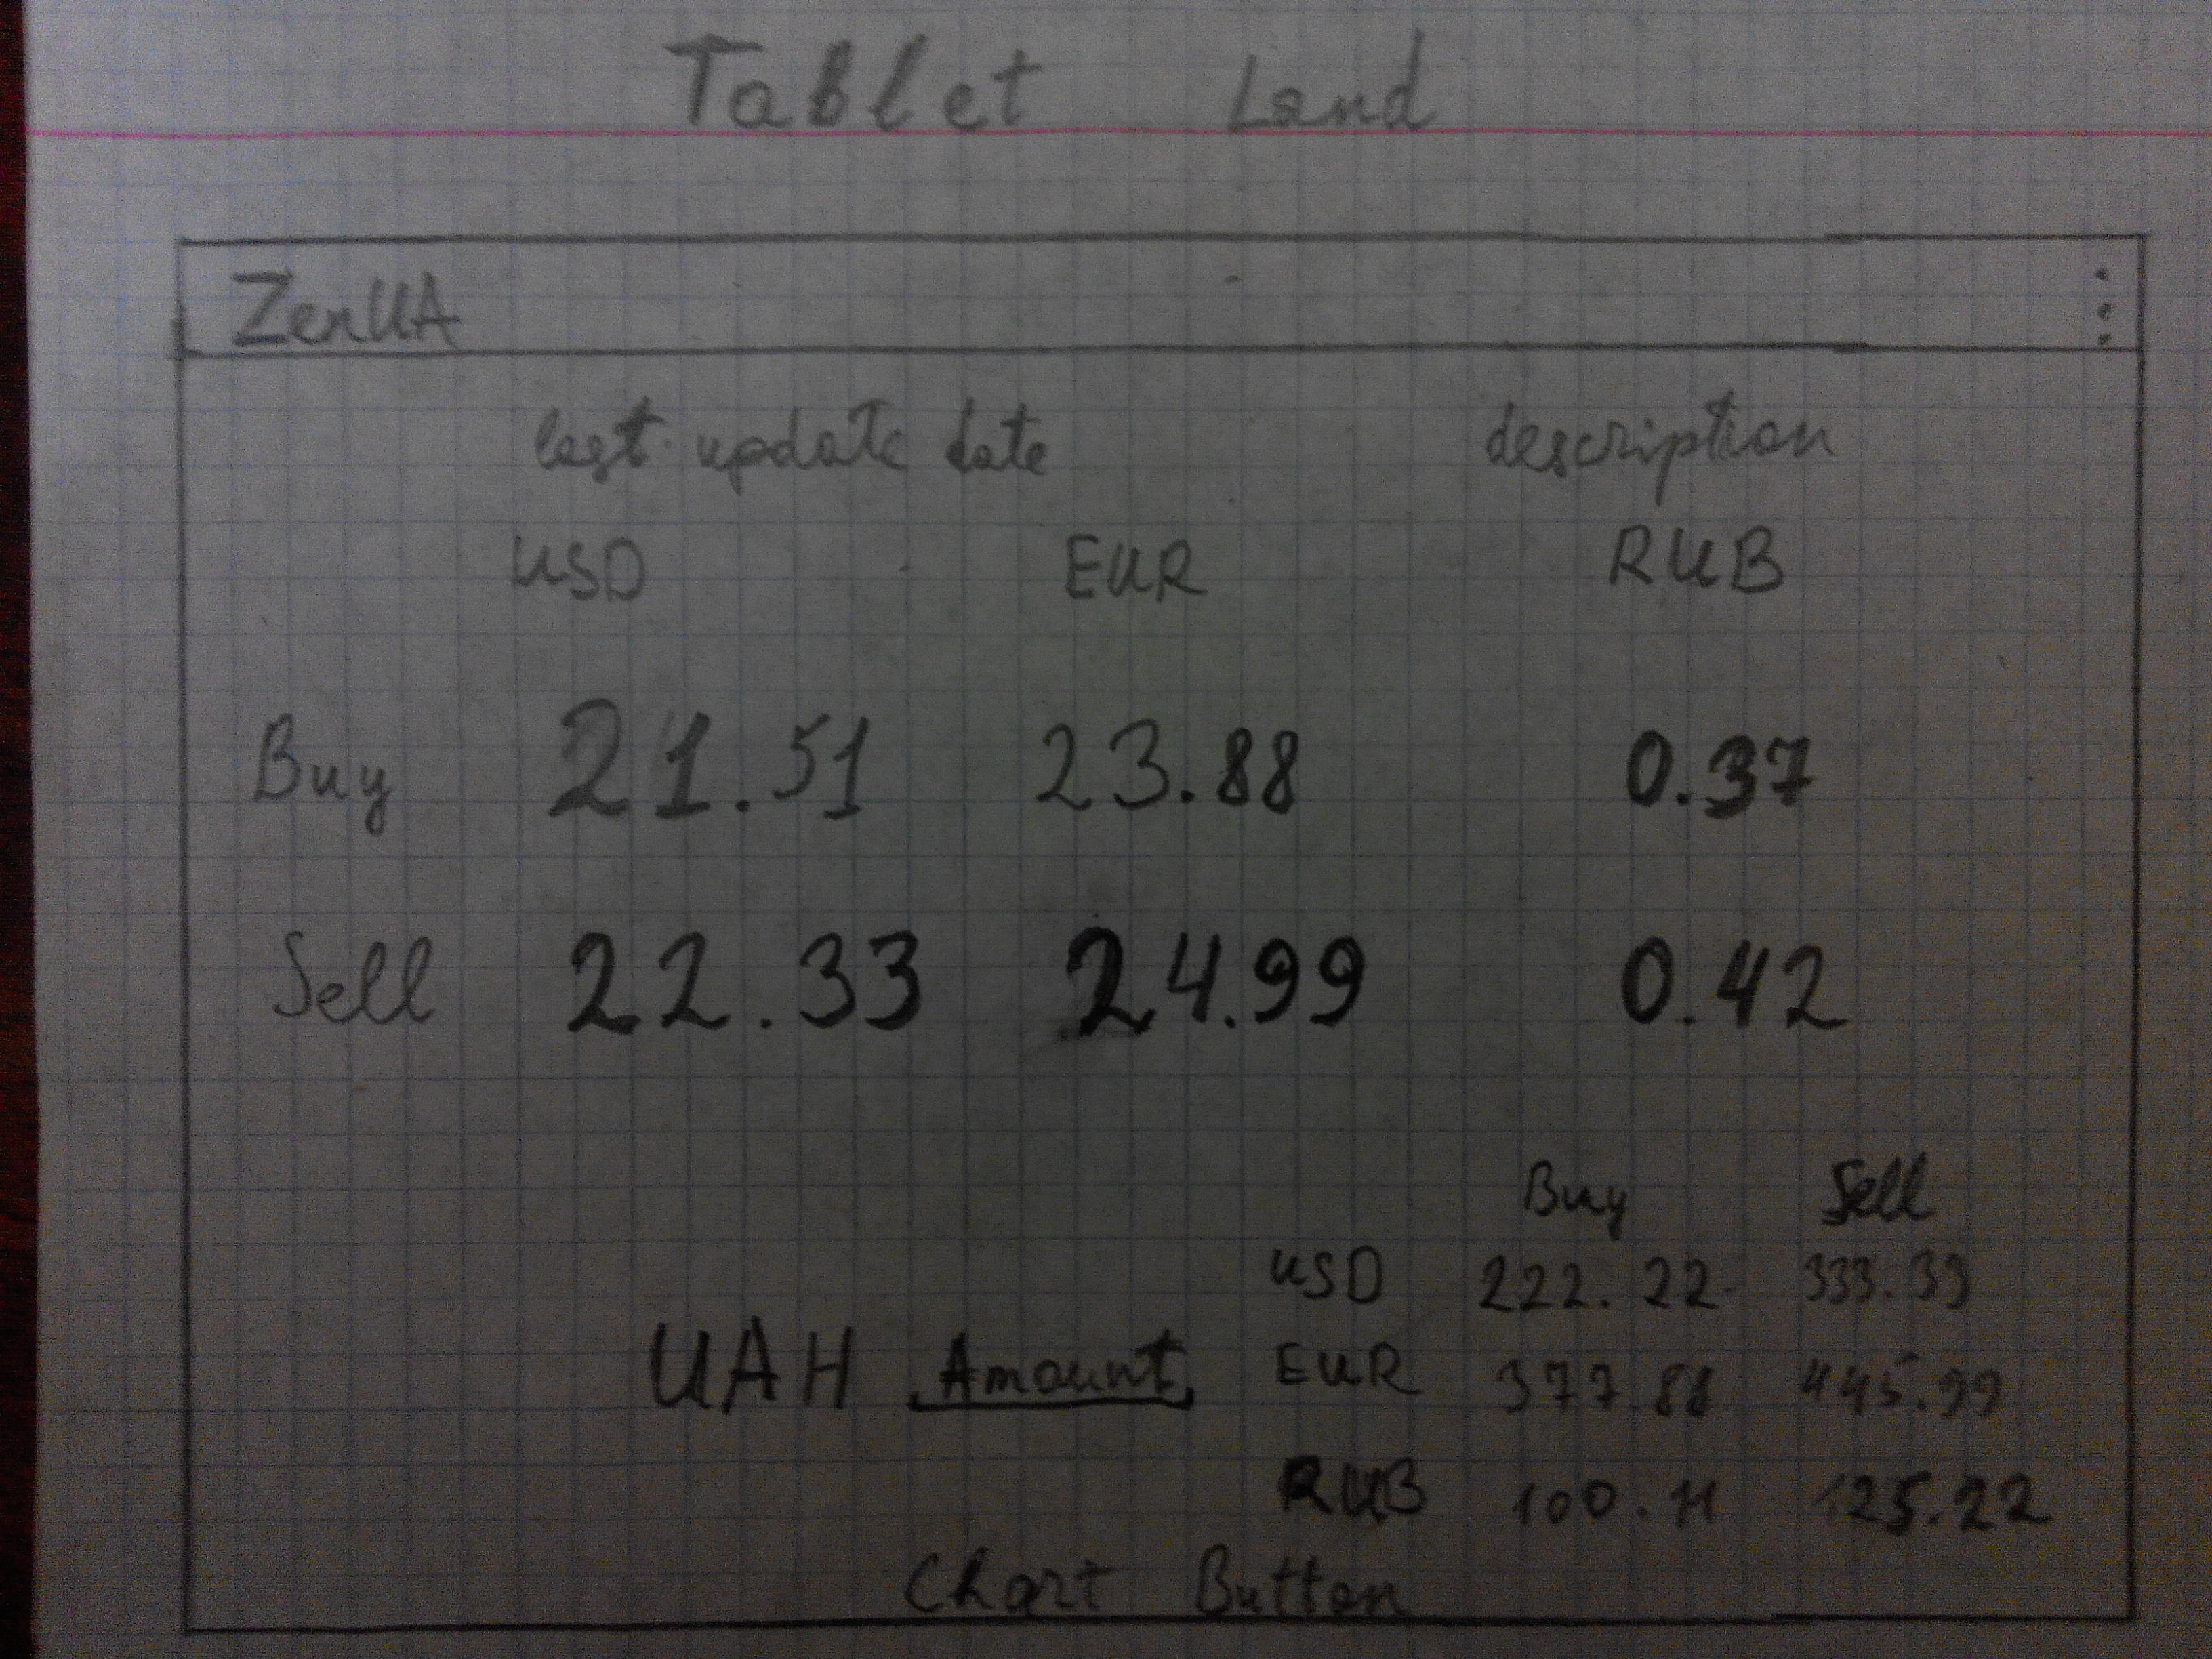 Tablet Land
ZenUA
last update date description
USD EUR RUB
Buy 21.51 23.88 0.37
Sell 22.33 24.99 0.42
Buy Sell
USD 222.22 333.33
UAH Amount EUR 377.88 445.99
RUB 100.11 125.22
Chart Button